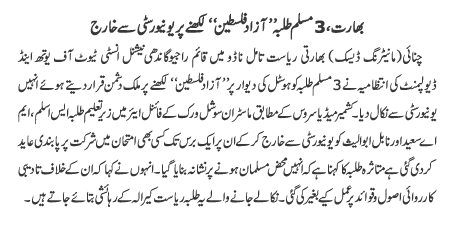 بھارت، 3 مسلم طلبہ ’’آزاد فلسطین‘‘ لکھنے پر یونیورسٹی سے خارج
چنائی (مانیٹرنگ ڈیسک) بھارتی ریاست تامل ناڈو میں قائم راجیو گاندھی نیشنل انسٹی ٹیوٹ آف یوتھ اینڈ
ڈیولپمنٹ کی انتظامیہ نے 3 مسلم طلبہ کو ہوسٹل کی دیوار پر ’’آزاد فلسطین‘‘ لکھنے پر ملک دشمن قرار دیتے ہوئے انہیں
یونیورسٹی سے نکال دیا۔ کشمیر میڈیا سروس کے مطابق ماسٹر ان سوشل ورک کے فائنل ایئر میں زیر تعلیم طلبہ ایس اسلم، ایم
اے سعید اور نابل ابوالیث کو یونیورسٹی سے خارج کر کے ان پر ایک برس تک کسی بھی امتحان میں شرکت پر پابندی عاید
کر دی گئی ہے متاثرہ طلبہ کا کہنا ہے کہ انہیں محض مسلمان ہونے پر نشانہ بنایا گیا۔ انہوں نے کہا کہ ان کے خلاف تادیبی
کارروائی اصول و قوائد پر عمل کیے بغیر کی گئی۔ نکالے جانے والے یہ طلبہ ریاست کیرالہ کے رہائشی بتائے جاتے ہیں۔